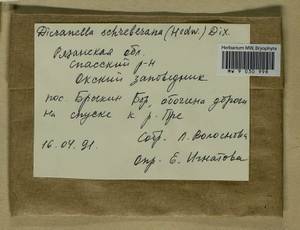 Dicranella schreberiana (Hedw.) Dix.
Herbarium MW, Bryophyta
MW 9 030 996
Рязанская обл.
Спасский р-н
Окский заповедник
пос. Брыкин Бор, обочина дороги
на спуске к р. Пре
Собр. Л. Волоснова
16.04.91.
Опр. Е. Игнатова